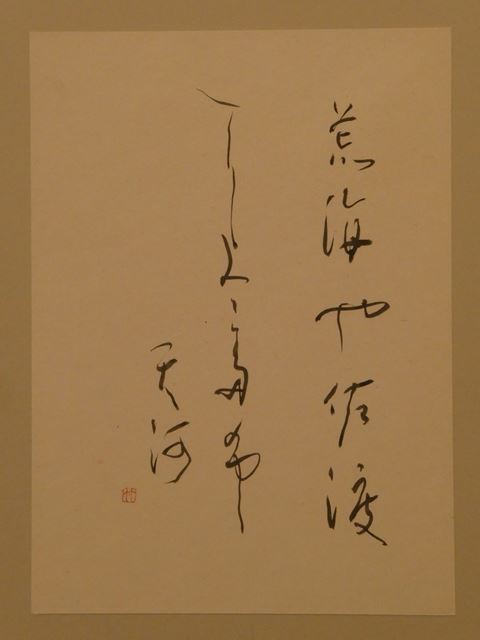 荒海や佐渡
によこ多布
天河